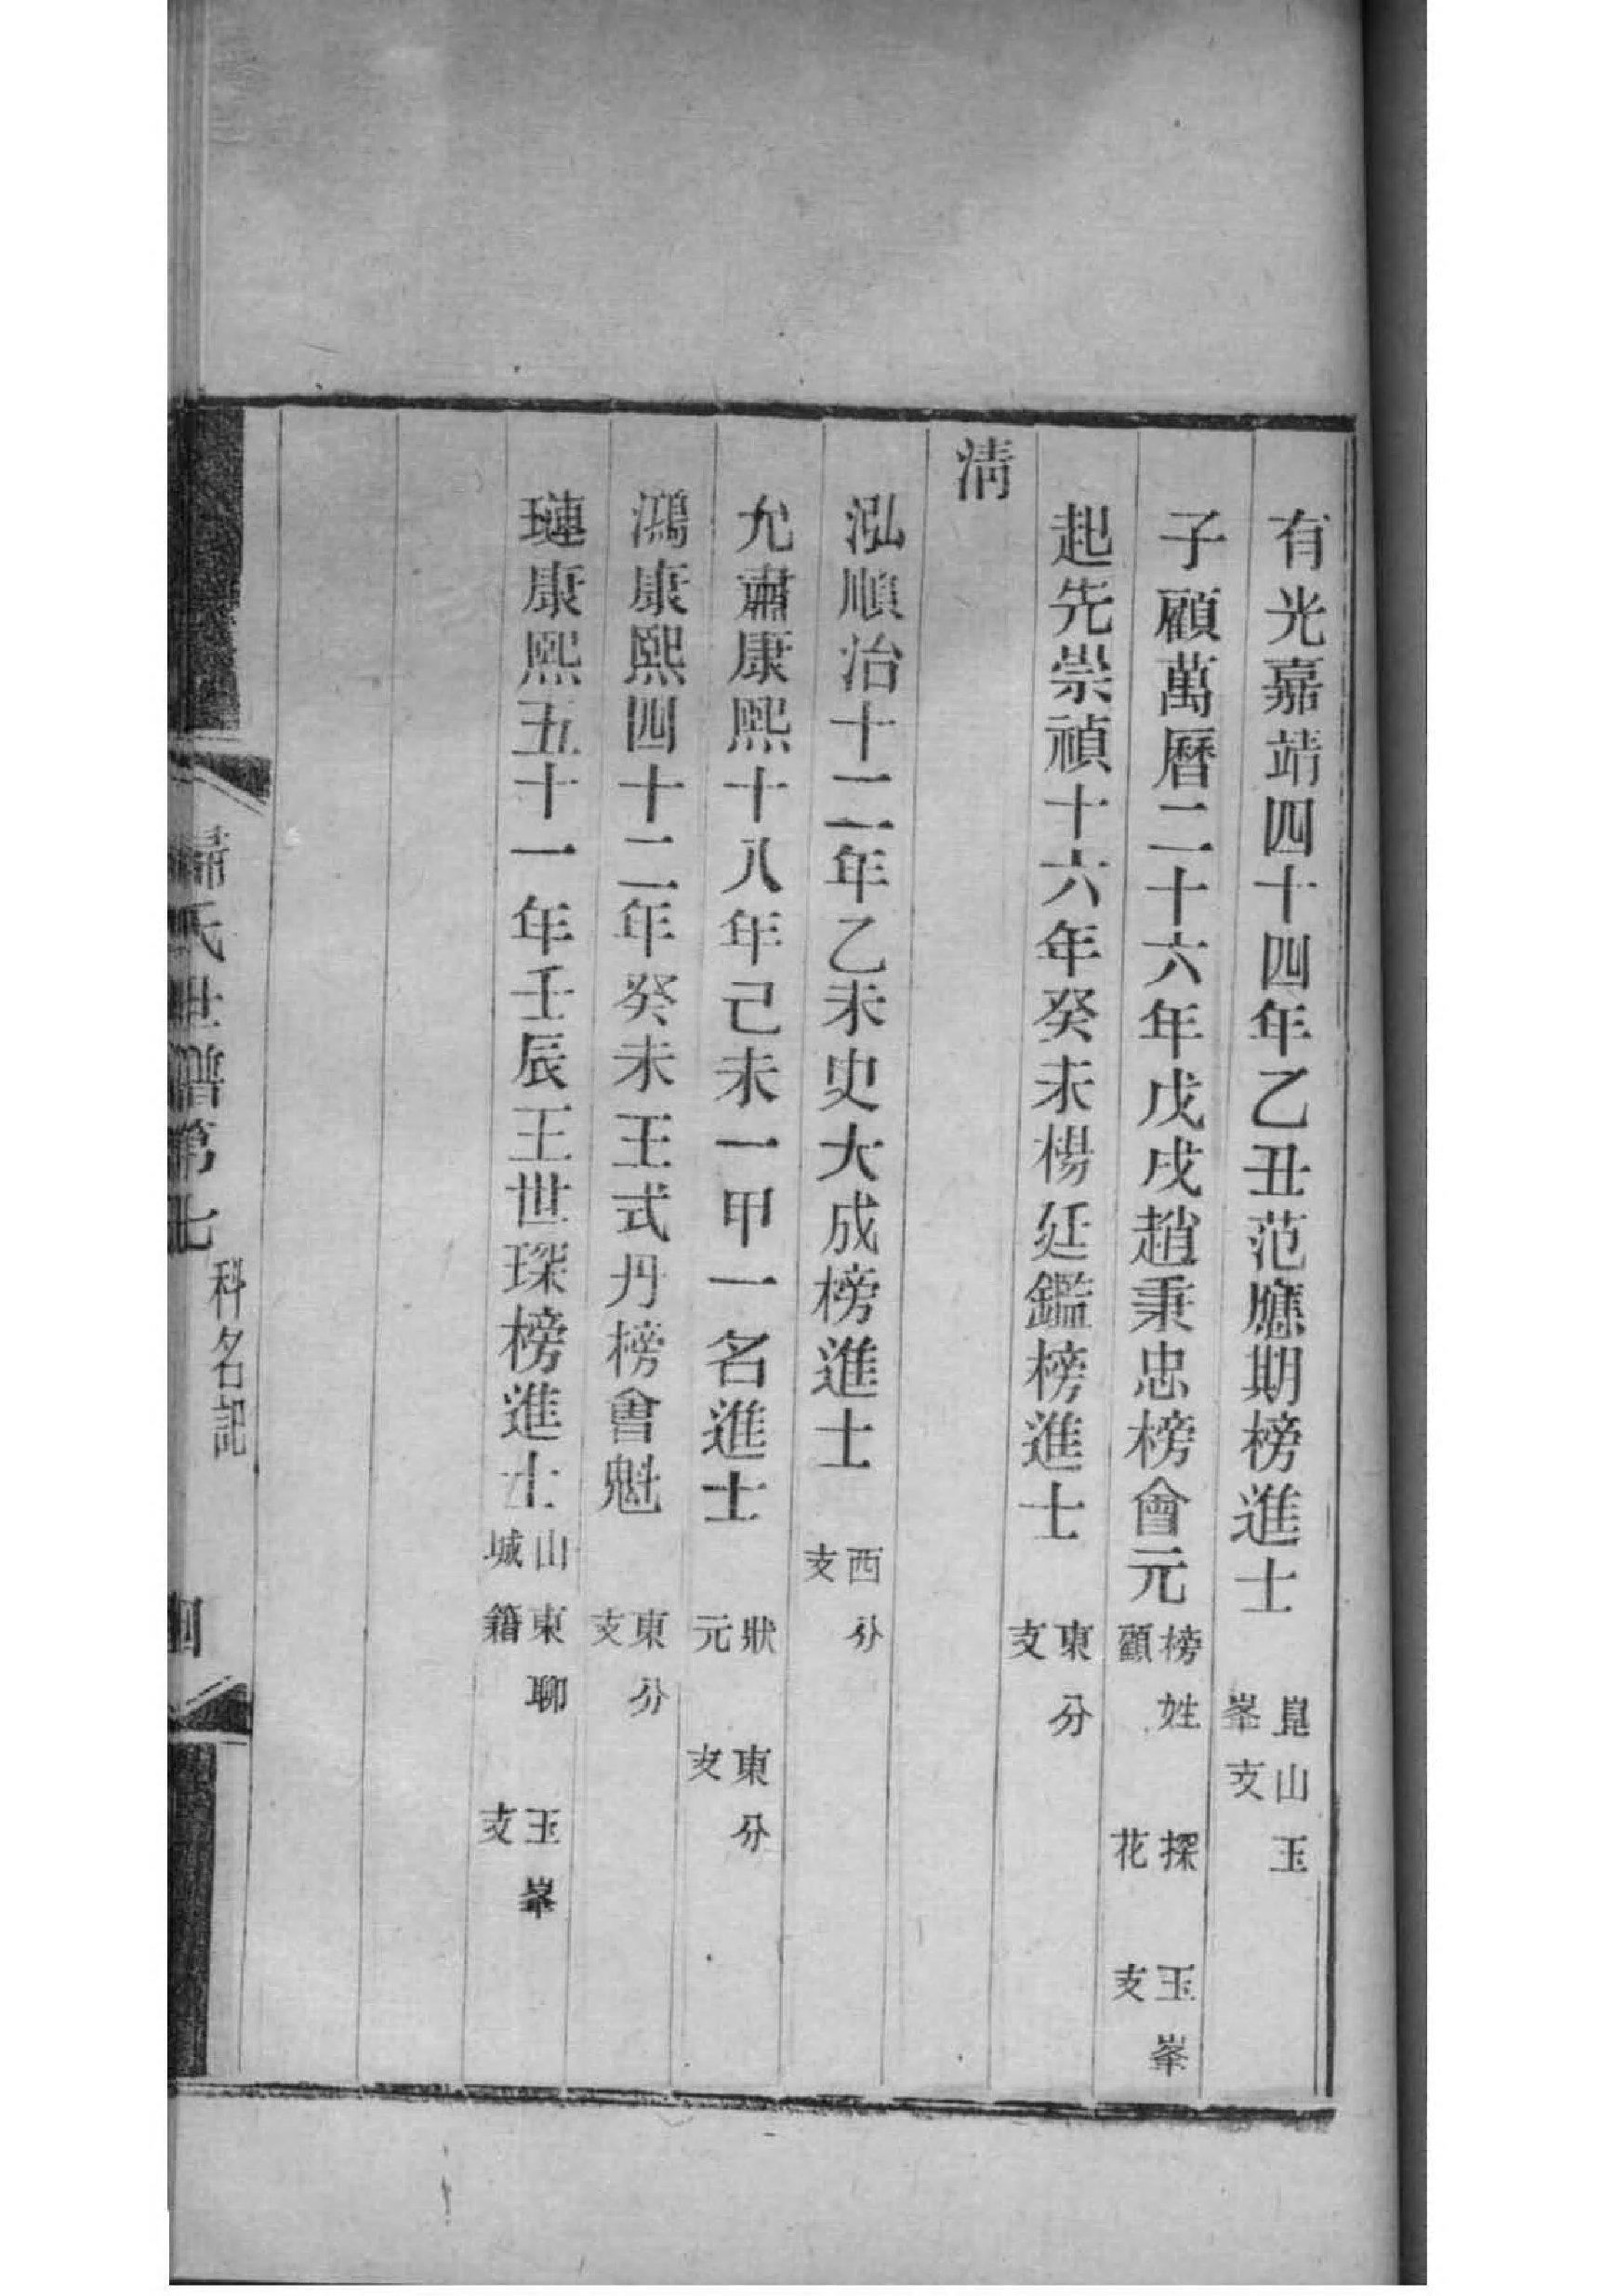 有光嘉靖四十四年乙丑范應期榜進士 崑山玉峯支
子顧萬曆二十六年戊戌趙秉忠榜會元 榜姓顧 探花 玉峯支
起先崇禎十六年癸未楊廷鑑榜進士 東分支
清
泓順治十二年乙未史大成榜進士 西分支
允肅康熙十八年己未一甲一名進士 狀元 東分支
鴻康熙四十二年癸未王式丹榜會魁 東分支
璉康熙五十一年壬辰王世琛榜進士 山東聊城籍 玉峯支
歸氏世譜第七 科名記 四